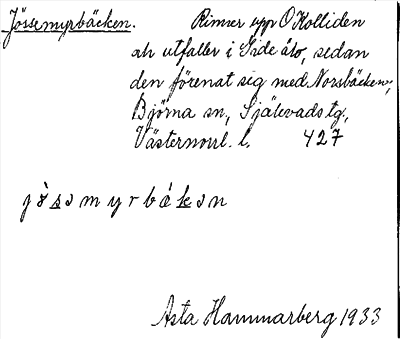 Jössemyrbäcken. Rinner upp Ö Kolliden
och utfaller i Side åto, sedan
den förenat sig med Norsbäcken,
Björna sn, Själevads tg.,
Västernorrl. l. 427
jösəmyrbäkən
Asta Hammarberg 1933